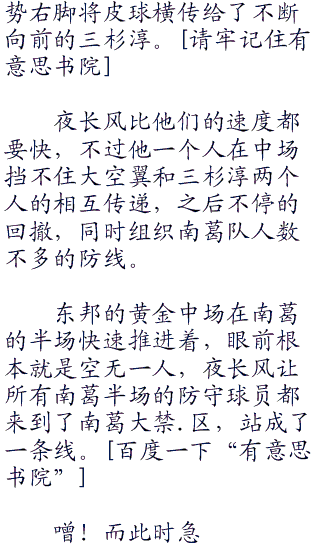 势右脚将皮球横传给了不断
向前的三杉淳。[请牢记住有
意思书院]
夜长风比他们的速度都
要快，不过他一个人在中场
挡不住大空翼和三杉淳两个
人的相互传递，之后不停的
回撤，同时组织南葛队人数
不多的防线。
东邦的黄金中场在南葛
的半场快速推进着，眼前根
本就是空无一人，夜长风让
所有南葛半场的防守球员都
来到了南葛大禁.区，站成了
一条线。[百度一下“有意思
书院”]
噌！而此时急